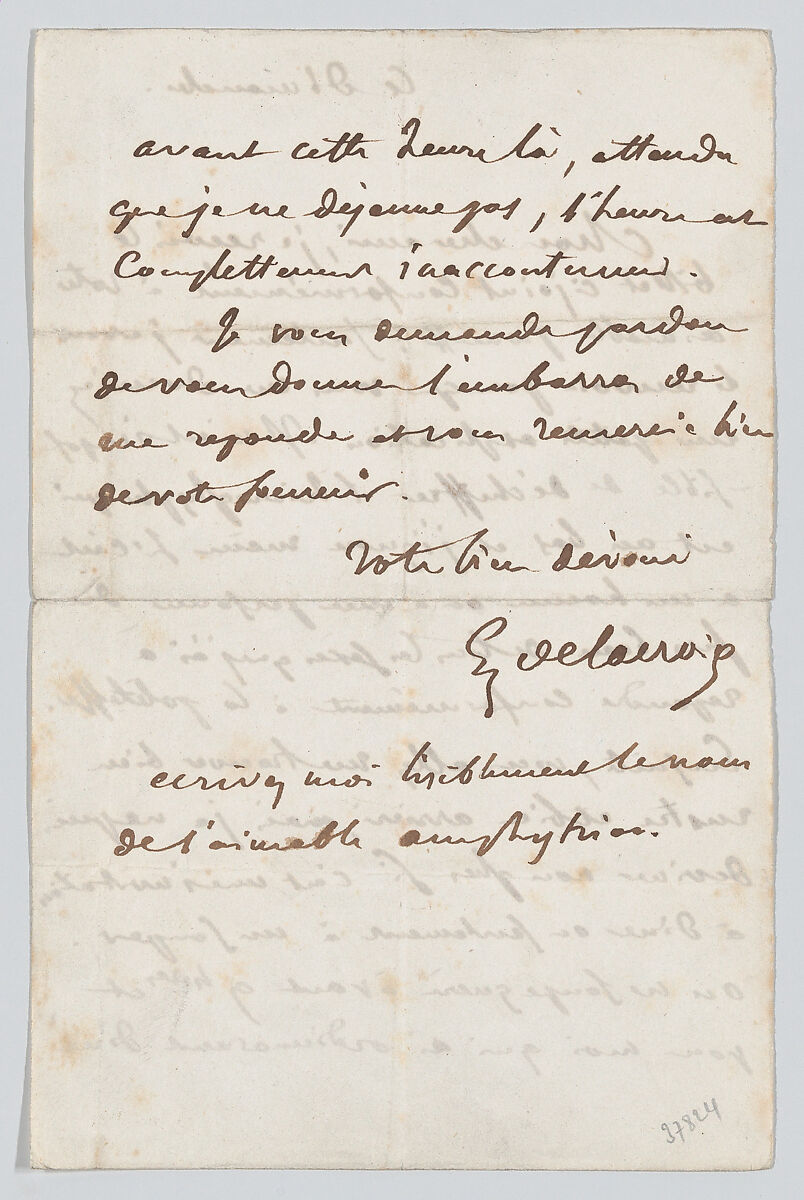 avant cette heure là, attendu
que je ne déjeune pas, l'heure est
Complettement inaccoutumée.
Je vous demande pardon
de vous donner l'embarras de
me reponde et vous remercie bien
de votre souvenir.
Votre bien dévoué
Eg Delacroix
ecrivez moi lisiblement le nom
de l'aimable amphytrion.
37824